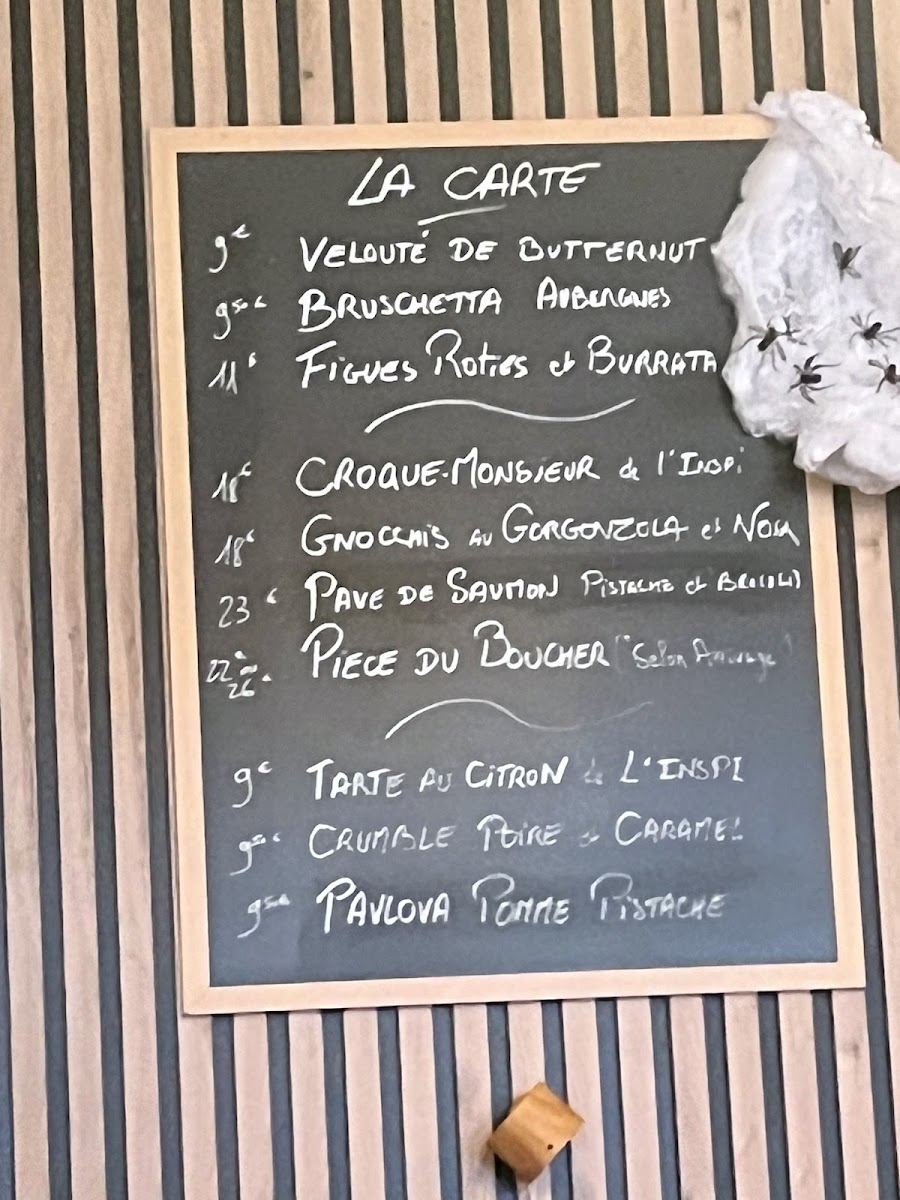 LA CARTE
9€ VELOUTÉ DE BUTTERNUT
9⁵⁰€ BRUSCHETTA AUBERGINES
11€ FIGUES ROTIES et BURRATA
18€ CROQUE-MONSIEUR de l'INSPI
18€ GNOCCHIS AU GORGONZOLA et NOIX
23€ PAVE DE SAUMON PISTACHE et BROCOLIS
22 à 26 PIECE DU BOUCHER ("Selon Arrivage")
9€ TARTE AU CITRON de L'INSPI
9⁵⁰€ CRUMBLE POIRE et CARAMEL
9⁵⁰€ PAVLOVA POMME PISTACHE